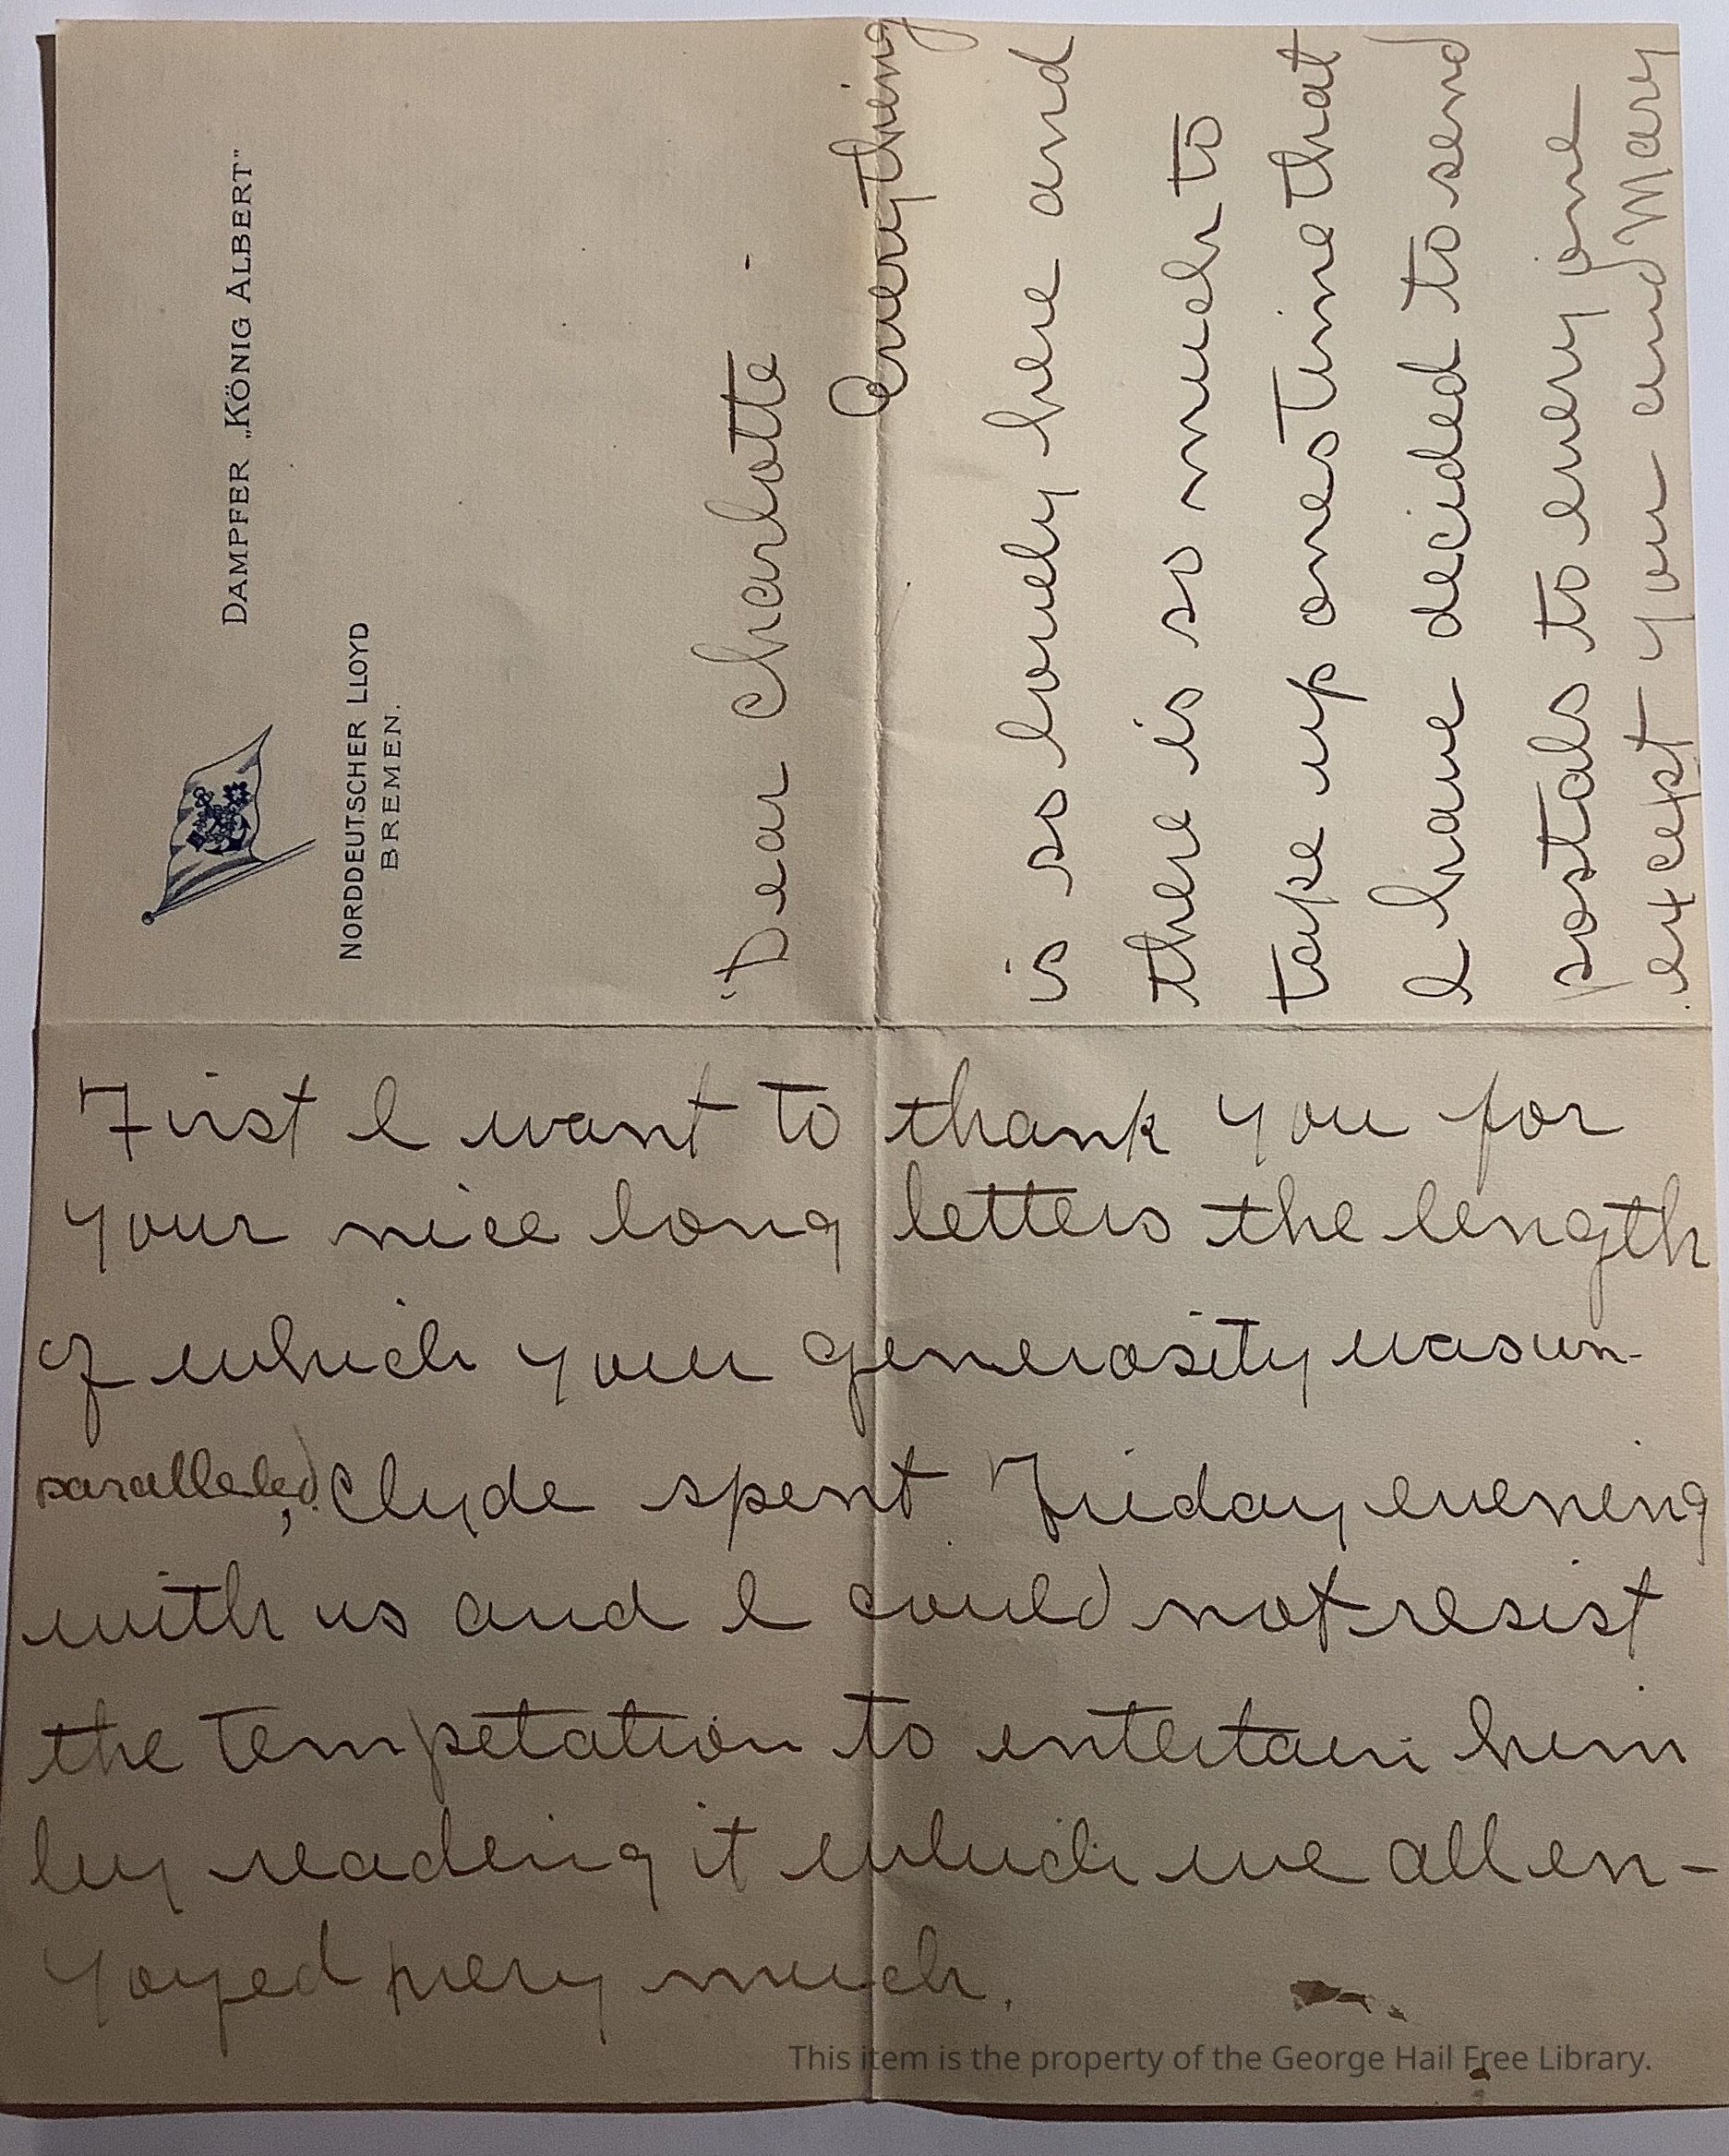 DAMPFER „KÖNIG ALBERT"
NORDDEUTSCHER LLOYD
BREMEN.
Dear Charlotte -
Everything
is so lovely here and
there is so much to
take up ones time that
I have decided to send
postals to every one
except you and Mary
First I want to thank you for
your nice long letters the length
of which your generosity was un-
paralleled, Clyde spent Friday evening
with us and I could not resist
the tempetation to entertain him
by reading it which we all en-
yoyed very much.
This item is the property of the George Hail Free Library.